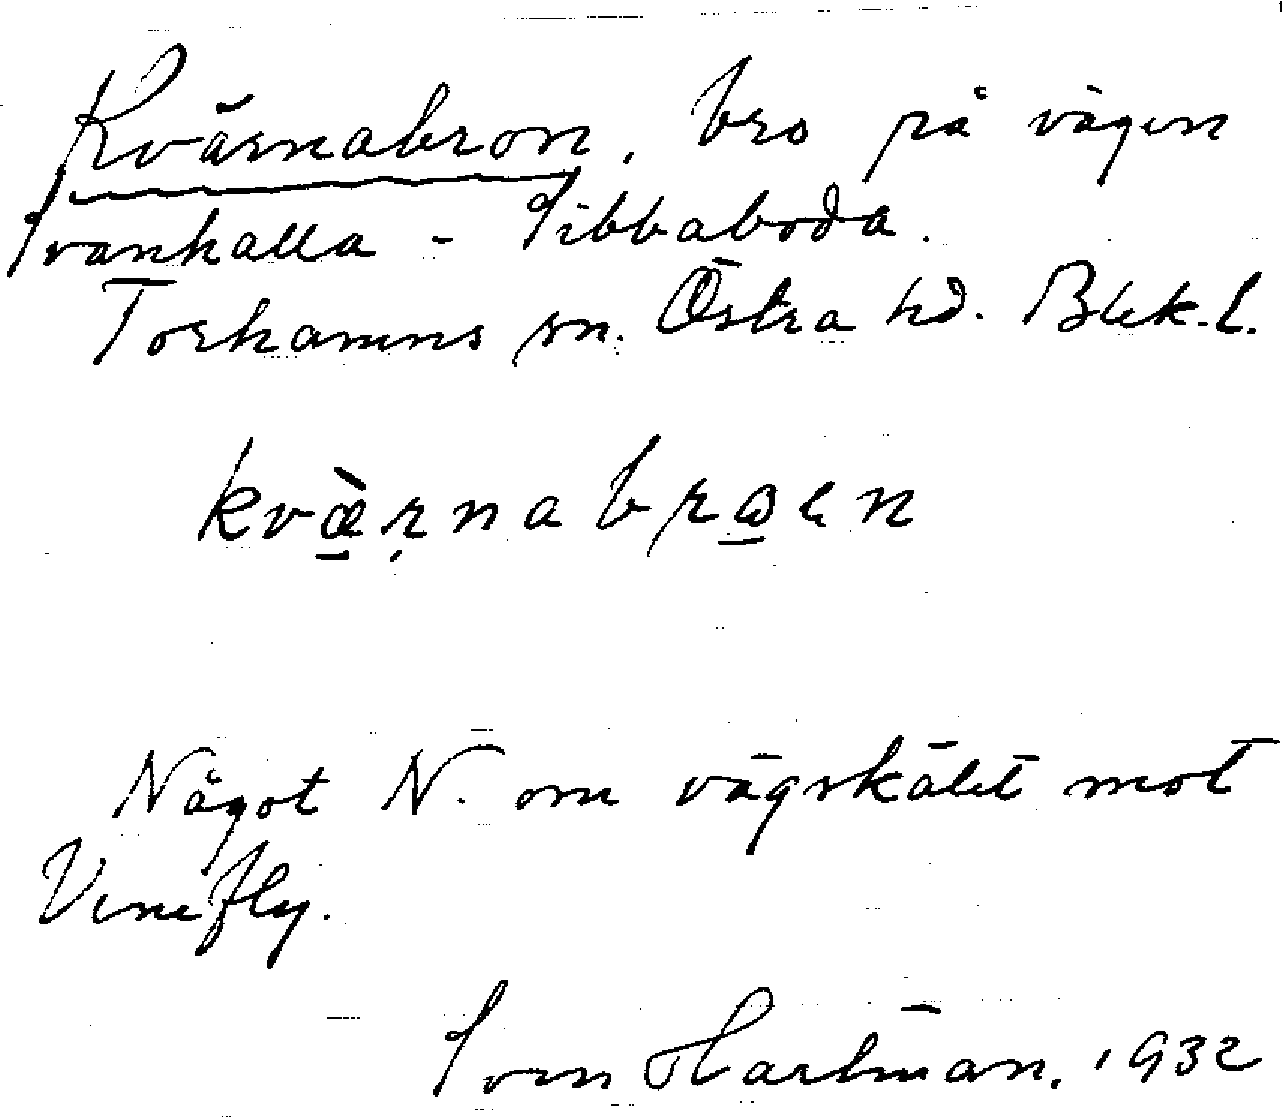 Kvärnabron, bro på vägen
Svanhalla - Sibbaboda.
Torhamns sn. Östra hd. Blek. l.
kvæ̀rnabroen
Något N. om vägskälet mot
Vinefly.
Sven Hartman. 1932